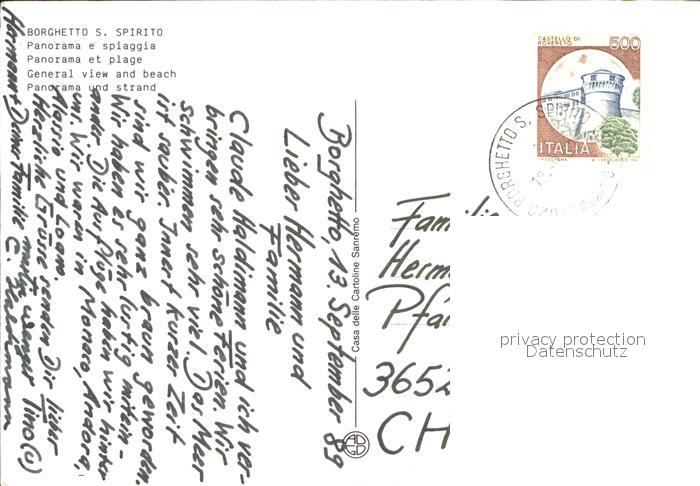 BORGHETTO S. SPIRITO
Panorama e spiaggia
Panorama et plage
General view and beach
Panorama und strand
CASTELLO DI
ROVERETO
500
ITALIA
BORGHETTO S. SPIRITO
Casa delle Cartoline Sanremo
Borghetto, 13. September 89
Lieber Hermann und
Familie
Claude Haldimann und ich ver-
bringen sehr schöne Ferien. Wir
schwimmen sehr viel. Das Meer
ist sauber. Innert kurzer Zeit
sind wir ganz braun geworden.
Wir haben es sehr lustig mitein-
ander. Die Ausflüge haben wir hinter
uns. Wir waren in Monaco, Andora,
Alassio und Loano.
Herzliche Grüsse senden Dir lieber
Hermann + Deine Familie Tino
C. Haldimann
Familie
Herm
Pfa
3652
CH
privacy protection
Datenschutz